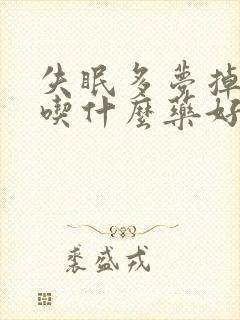 失眠多夢掉
喫什麼藥好
裘盛戎